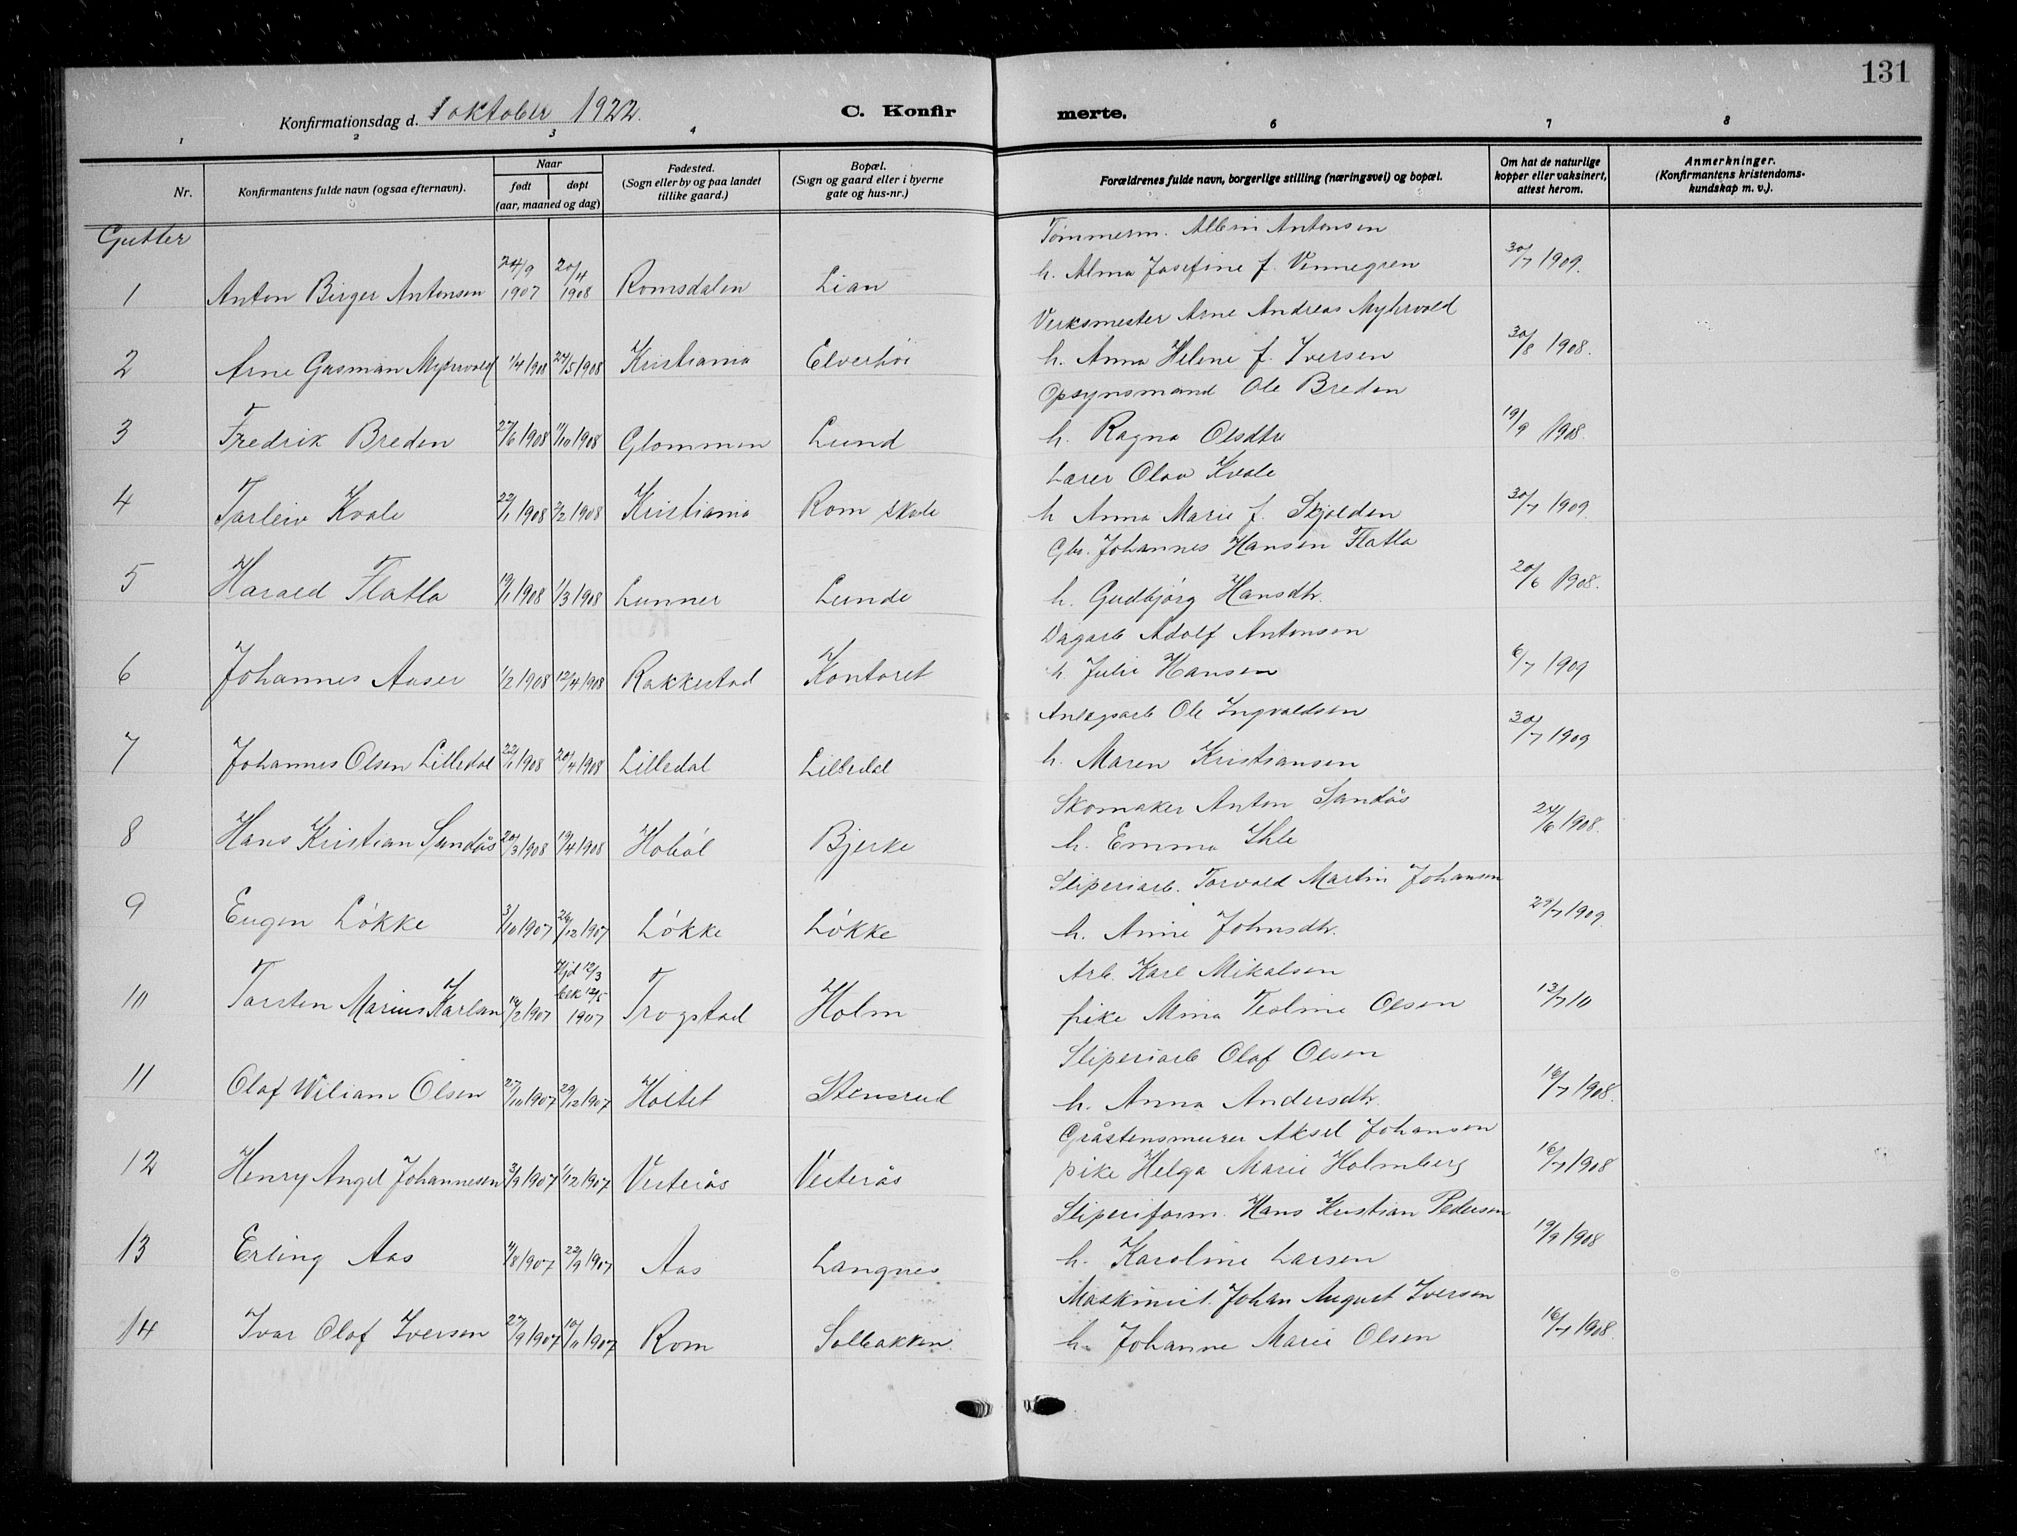 131
Konfirmationsdag d. 1 oktober 1922.
C. Konfirmerte.
1 2 3 4 6 7 8
Nr.
Konfirmantens fulde navn (ogsaa efternavn).
Naar
født
døpt
(aar, maaned og dag)
Fødested.
(Sogn eller by og paa landet
tillike gaard.)
Bopæl.
(Sogn og gaard eller i byerne
gate og hus-nr.)
Forældrenes fulde navn, borgerlige stilling (næringsvei) og bopæl.
Om hat de naturlige
kopper eller vaksinert,
attest herom.
Anmerkninger.
(Konfirmantens kristendoms-
kundskap m. v.).
Gutter
Tømmerm. Albin Antonsen
1 Anton Birger Antonsen 24/9 1907 20/4 1908 Romsdalen Lian h. Alma Josefine f. Vennegren 30/7 1909.
Verksmester Arne Andreas Myhrvold
2 Arne Gasman Myhrvold 1/4 1908 24/5 1908 Kristiania Elverhøi h. Anna Helene f. Iversen 30/8 1908.
Opsynsmand Ole Breden
3 Fredrik Breden 27/6 1908 11/10 1908 Glommen Lund h. Ragna Olsdtr 19/9 1908.
Lærer Olav Kvale
4 Tarleiv Kvale 22/1 1908 2/2 1908 Kristiania Rom skole h Anna Marie f. Skjolden 30/7 1909.
Gbr. Johannes Hansen Flatla
5 Harald Flatla 19/1 1908 1/3 1908 Lunner Lunde h. Gudbjørg Hansdtr. 20/6 1908.
Dagarb Adolf Antonsen
6 Johannes Aaser 1/2 1908 12/4 1908 Rakkestad Kontoret h. Julie Hansen 6/7 1909
Anlægsarb Ole Ingvaldsen
7 Johannes Olsen Lilledal 22/1 1908 20/4 1908 Lilledal Lilledal h. Maren Kristiansen 30/7 1909
Skomaker Anton Sandås
8 Hans Kristian Sandås 20/3 1908 19/4 1908 Hobøl Bjerke h. Emma Ihle 24/6 1908.
Sliperiarb. Torvald Martin Johansen
9 Eugen Løkke 3/10 1907 26/12 1907 Løkke Løkke h. Anne Johnsdtr. 29/7 1909.
Arb. Karl Mikalsen
10 Torsten Marius Karlsen 14/2 1907 Hjd 12/3 bek 12/5 1907 Trogstad Holm pike Mina Teoline Olsen 13/7 10
Sliperiarb Olaf Olsen
11 Olaf Wiliam Olsen 27/10 1907 29/12 1907 Holtet Stensrud h. Anna Andersdtr. 16/7 1908.
Gråstensmurer Aksel Johansen
12 Henry Angel Johannesen 3/9 1907 1/12 1907 Vesterås Vesterås pike Helga Marie Holmberg 16/7 1908
Sliperiform. Hans Kristian Pedersen
13 Erling Aas 4/8 1907 22/9 1907 Aas Langnes h. Karoline Larsen 19/9 1908
Maskinist. Johan August Iversen
14 Ivar Olaf Iversen 27/9 1907 10/11 1907 Rom Solbakken. h. Johanne Marie Olsen 16/7 1908.